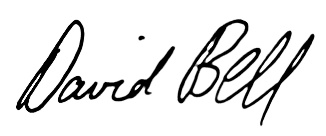 David Bell